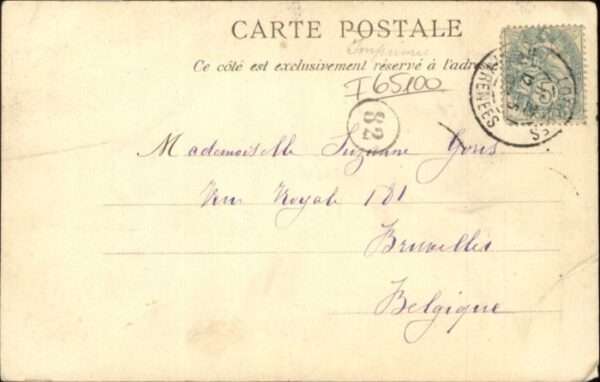 CARTE POSTALE
Imprimé
Ce côté est exclusivement réservé à l'adresse
I 65100
82
PYRENEES
LO
5
Mademoiselle Suzanne Goris
Rue Royale 181
Bruxelles
Belgique